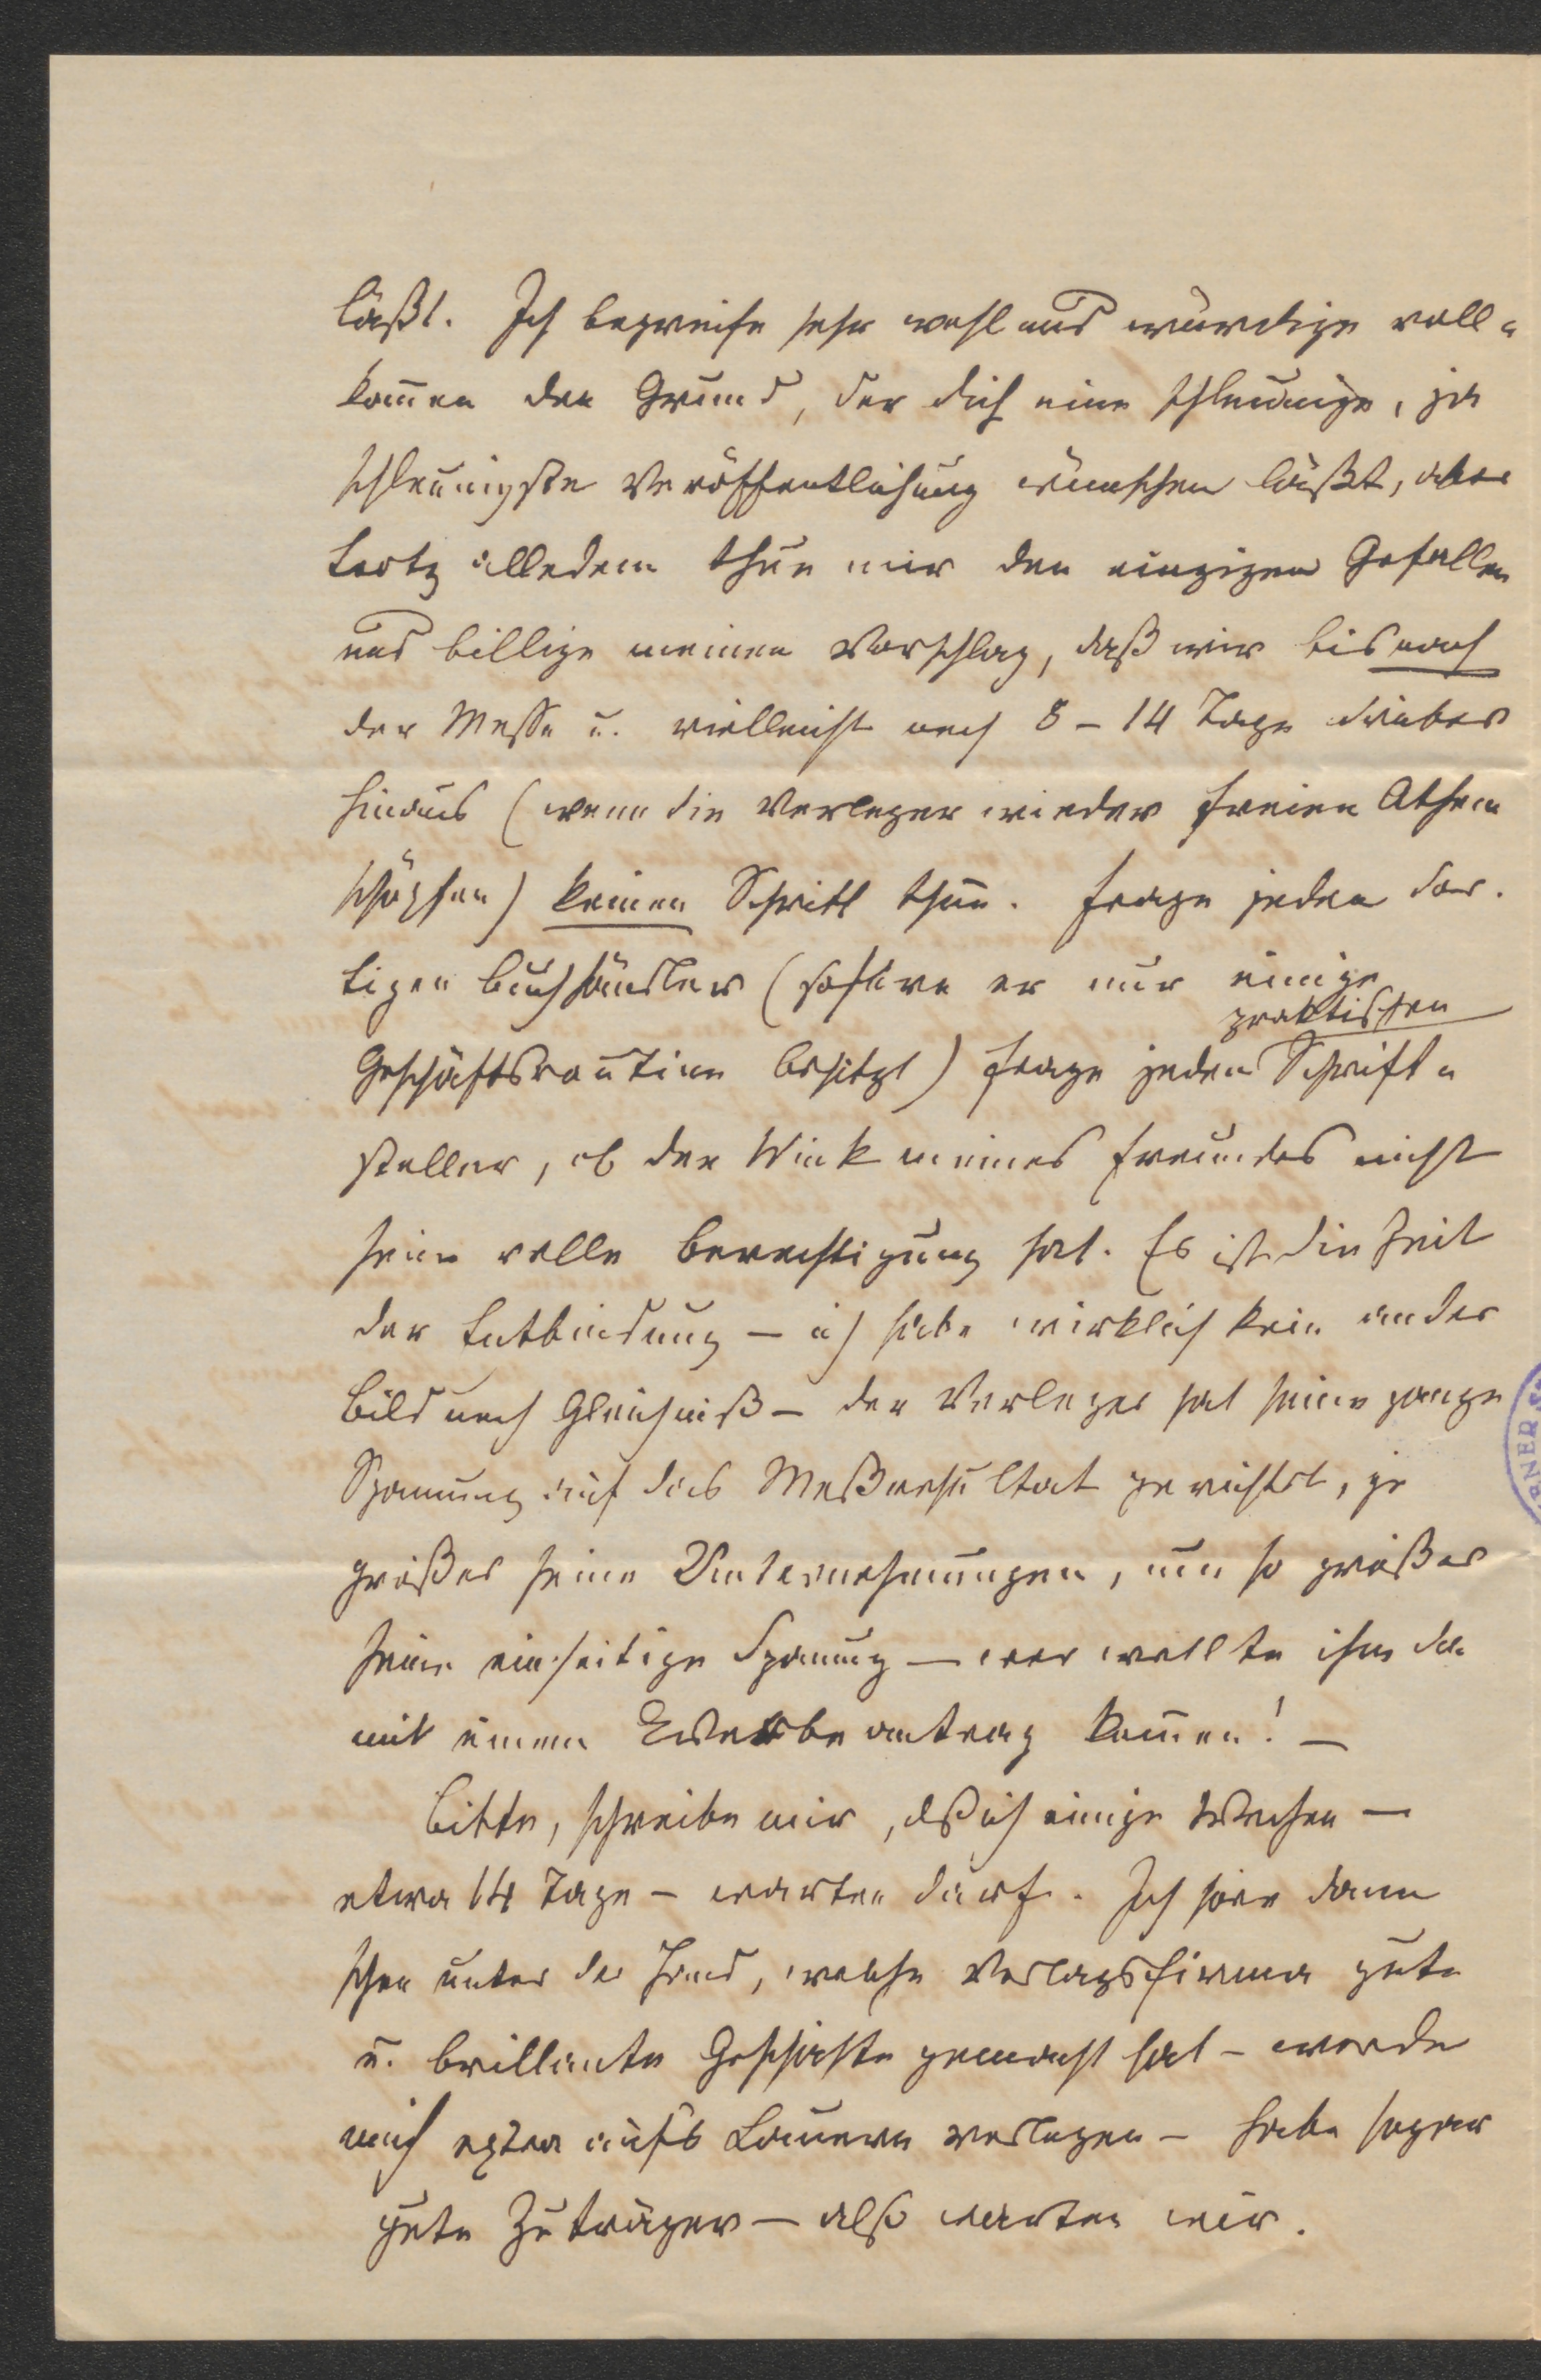 läßt. Ich begreife sehr wohl und würdige voll-
kom̄en den Grund, der dich eine schleunige, ja
schleunigste Veröffentlichung wünschen läßt, aber
trotz alledem thue mir den einzigen Gefallen
und billige meinen Vorschlag, daß wir bis nach
der Messe u. vielleicht noch 8 – 14 Tage drüber
hinaus (wenn die Verleger wieder freien Athem
schöpfen) keinen Schritt thun. Frage jeden dor-
tigen Buchhändler (sofern er nur einige
praktischen
Geschäftsroutine besitzt) frage jeden Schrift-
steller, ob der Wink meines Freundes nicht
seine volle Berechtigung hat. Es ist die Zeit
der Entbindung – ich habe wirklich kein ander
Bild noch Gleichniß – der Verleger hat seine ganze
Spannung auf das Meßresultat gerichtet, je
größer seine Unternehmungen, um so größer
seine einseitige Spannung – wer wollte ihm da
mit einem Erwerbeantrag kom̄en! –
Bitte, schreibe mir, daß ich einige Wochen –
etwa 14 Tage – warten darf. Ich höre dann
schon unter der Hand, welche Verlagsfirma gute
u. brillante Geschäfte gemacht hat – werde
mich extra aufs Lauern verlegen – habe sogar
gute Zuträger – also warten wir.